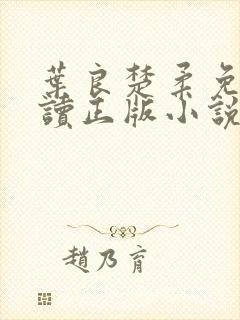 葉良楚柔免
讀正版小說
趙乃育